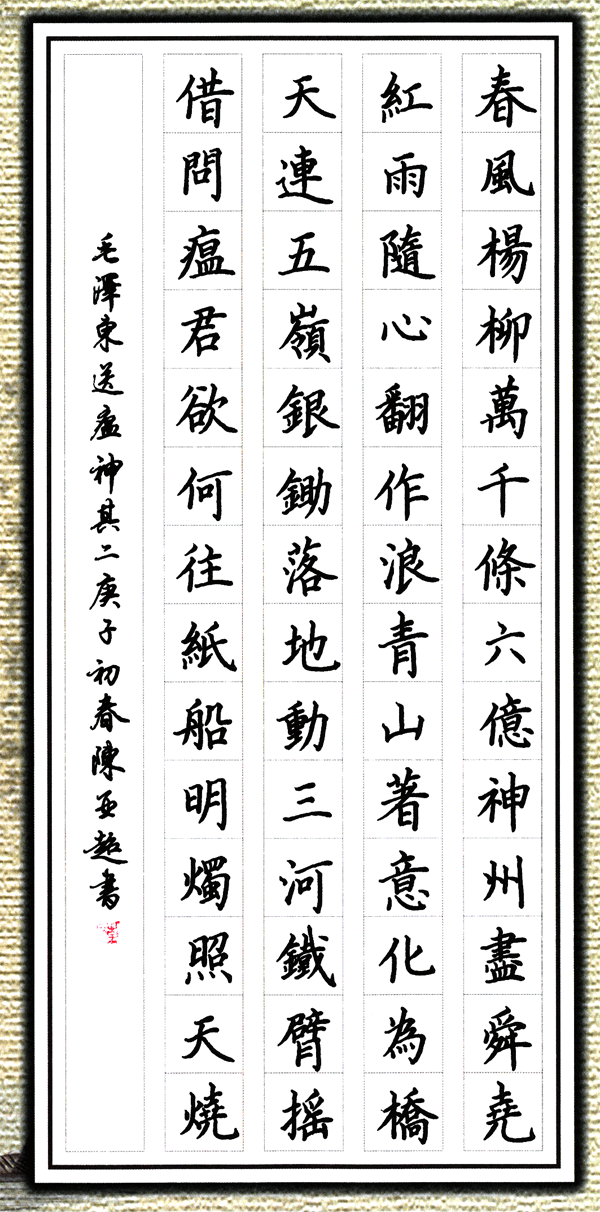 春風楊柳萬千條六億神州盡舜堯
紅雨隨心翻作浪青山著意化為橋
天連五嶺銀鋤落地動三河鐵臂摇
借問瘟君欲何往紙船明燭照天燒
毛澤東送瘟神其二庚子初春陳亚超書